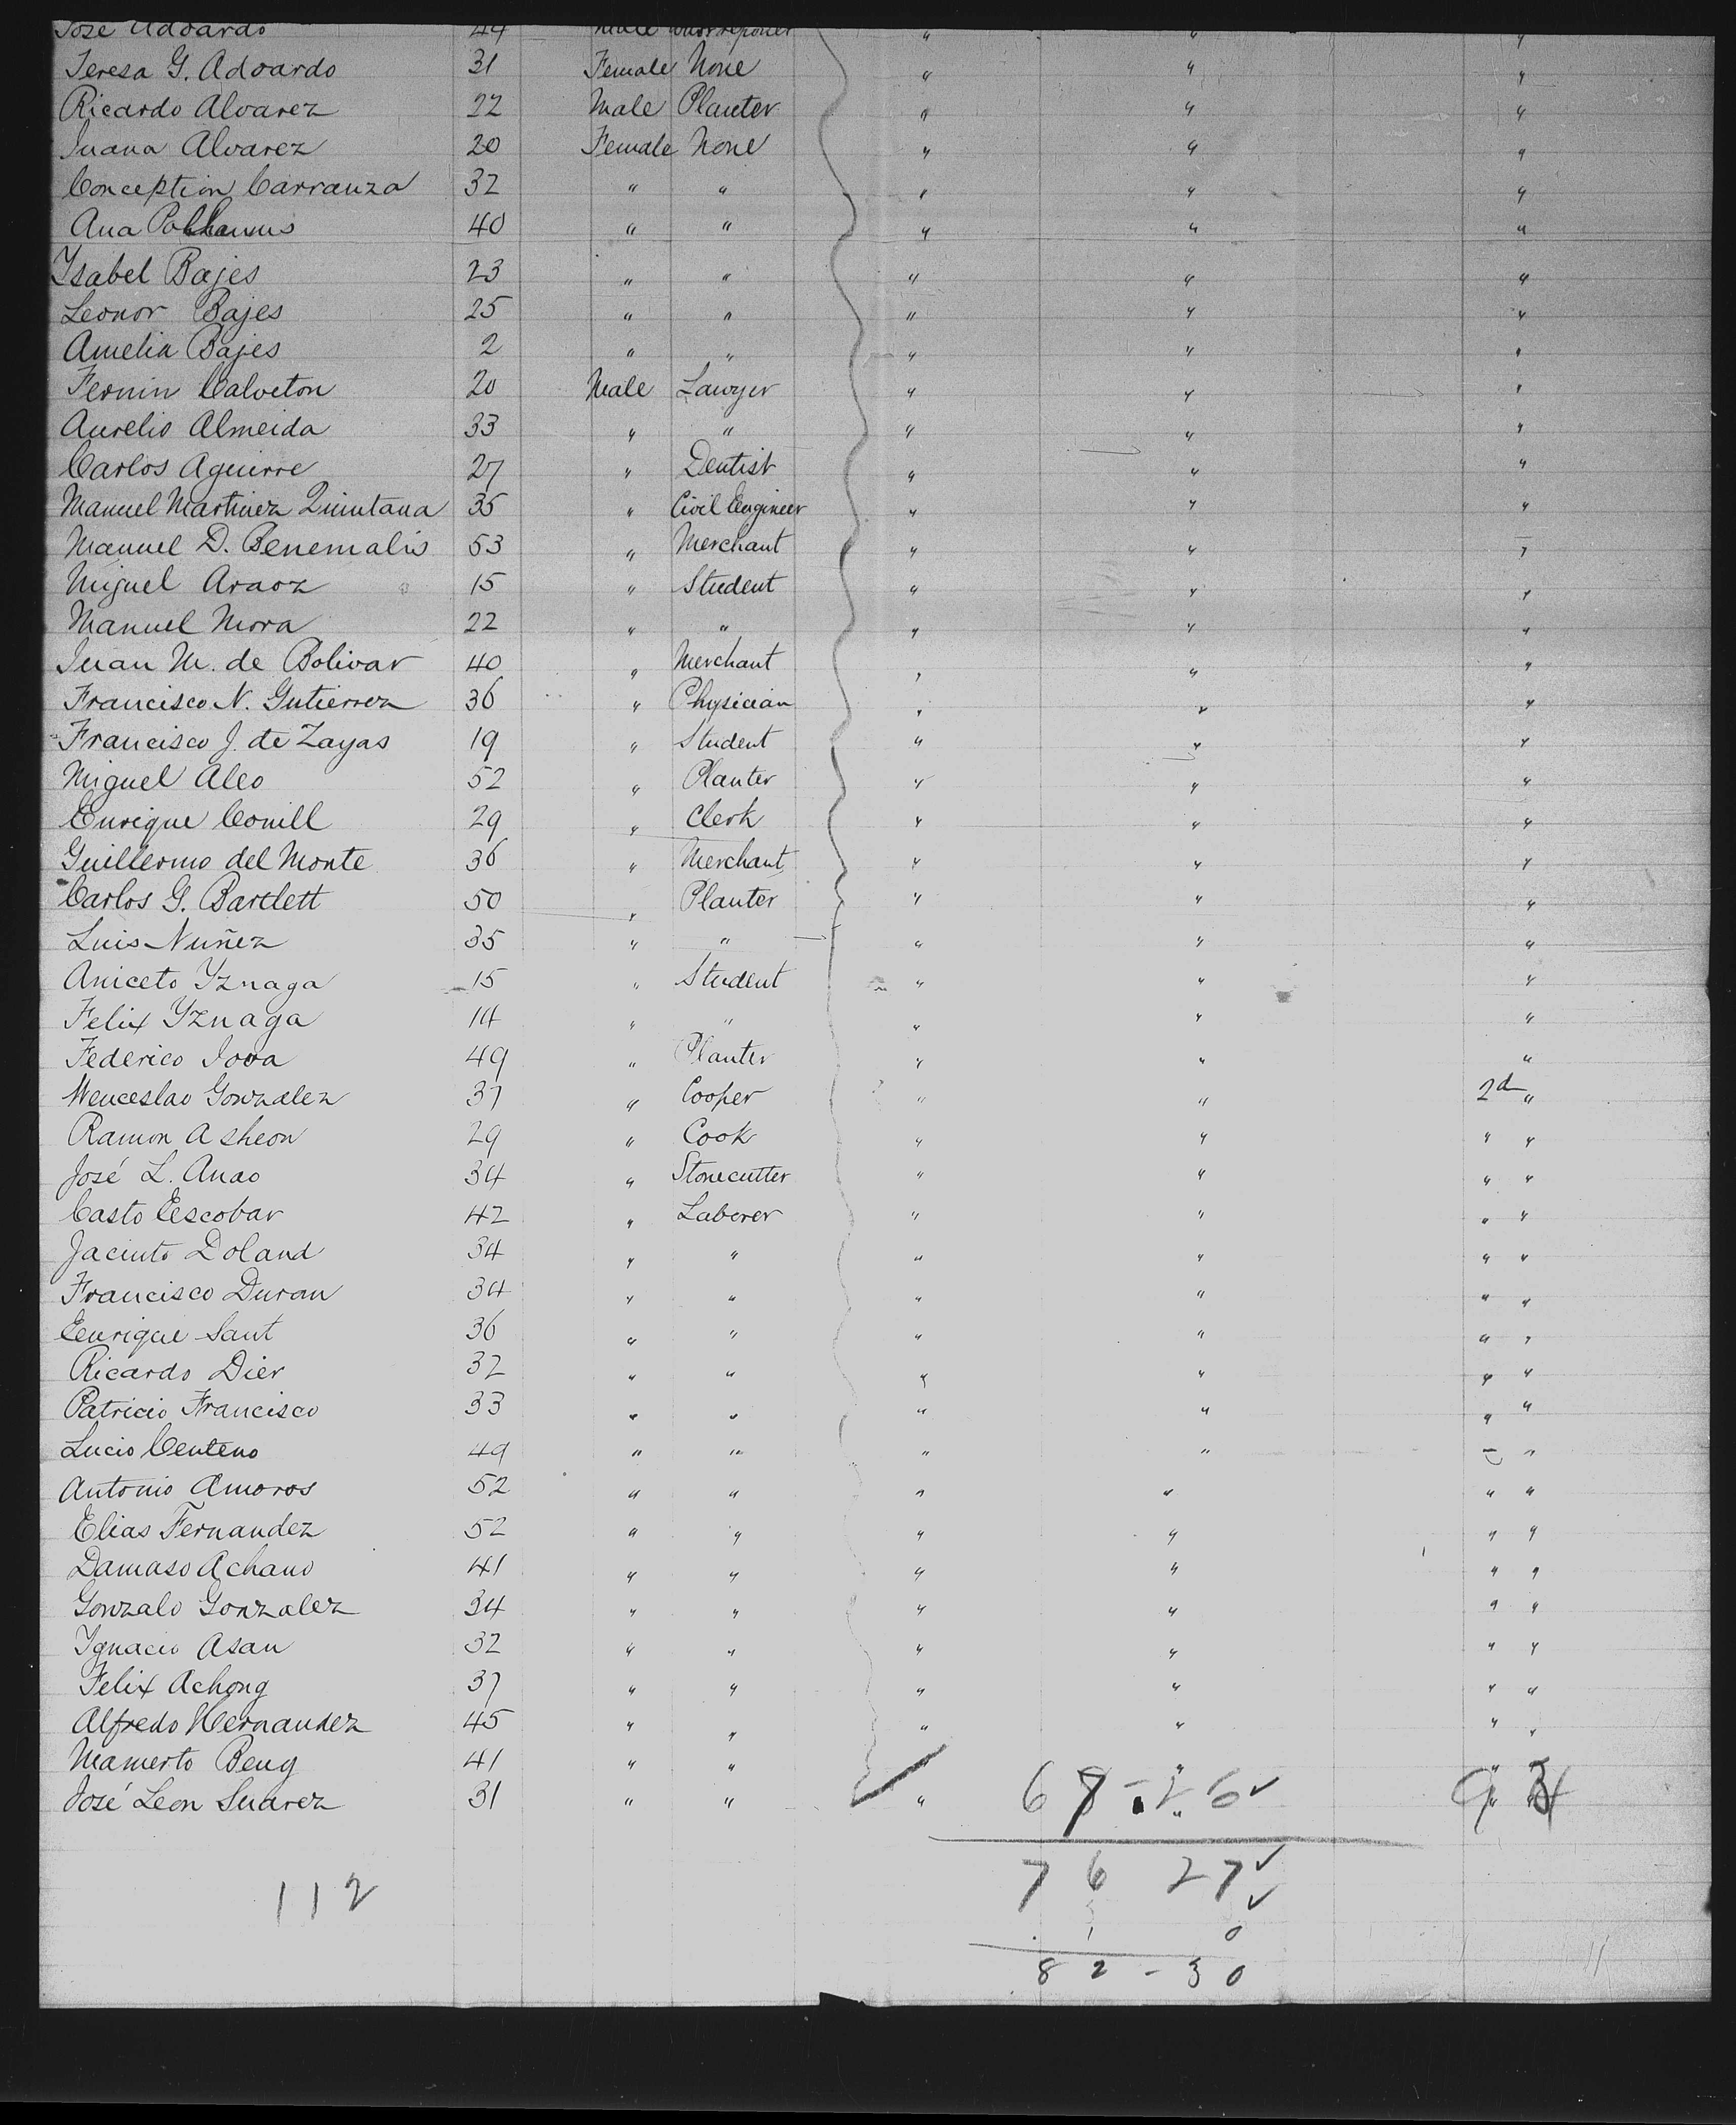 José Advardo 44 Male " "
Teresa G. Advardo 31 Female None " " "
Ricardo Alvarez 22 Male Planter " " "
Juana Alvarez 20 Female None " " "
Conception Carranza 32 " " " " "
Ana 40 " " " " "
Ysabel Bajes 23 " " " " "
Leonor Bajes 25 " " " " "
Amelia Bajes 2 " " " " "
Fermin Calveton 20 Male Lawyer " " "
Aurelio Almeida 33 " " " " "
Carlos Aguirre 27 " Dentist " " "
Manuel Martinez Quintana 35 " Civil Engineer " " "
Manuel D. Benemalis 53 " Merchant " " "
Miguel Araoz 15 " Student " " "
Manuel Mora 22 " " " " "
Juan M. de Bolivar 40 " Merchant " " "
Francisco N. Gutierrez 36 " Physician " " "
Francisco J. de Zayas 19 " Student " " "
Miguel Aleo 52 " Planter " " "
Enrique Conill 29 " Clerk " " "
Guillermo del Monte 36 " Merchant " " "
Carlos G. Bartlett 50 " Planter " " "
Luis Nuñez 35 " " " " "
Aniceto Yznaga 15 " Student " " "
Felix Yznaga 14 " " " " "
Federico Jova 49 " Planter " " "
Wenceslao Gonzalez 37 " Cooper " " 2d "
Ramon Asheon 29 " Cook " " " "
José L. Anao 34 " Stonecutter " " " "
Casto Escobar 42 " Laborer " " " "
Jacinto Doland 34 " " " " " "
Francisco Duran 34 " " " " " "
Enrique Sant 36 " " " " " "
Ricardo Dier 32 " " " " " "
Patricio Francisco 33 " " " " " "
Lucio Centeno 49 " " " " " "
Antonio Amoros 52 " " " " " "
Elias Fernandez 52 " " " " " "
Damaso Achano 41 " " " " " "
Gonzalo Gonzalez 34 " " " " " "
Ygnacio Asan 32 " " " " " "
Felix Achong 37 " " " " " "
Alfredo Hernandez 45 " " " " " "
Mamerto Beng 41 " " " "
José Leon Suarez 31 " " " "
7 6 27
112
1 0
82 - 30